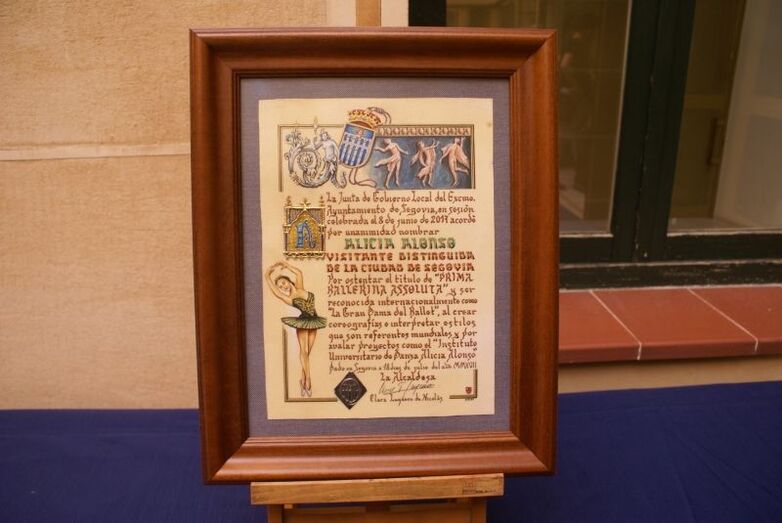 La Junta de Gobierno Local del Excmo.
Ayuntamiento de Segovia, en sesión
celebrada el 8 de junio de 2017 acordó
por unanimidad nombrar
ALICIA ALONSO
VISITANTE DISTINGUIDA
DE LA CIUDAD DE SEGOVIA
Por ostentar el título de "PRIMA
BALLERINA ASSOLUTA" y ser
reconocida internacionalmente como
"La Gran Dama del Ballet", al crear
coreografías e interpretar estilos
que son referentes mundiales y por
avalar proyectos como el "Instituto
Universitario de Danza Alicia Alonso"
Dado en Segovia a 18 de julio del año MMXVII
La Alcaldesa
Clara Luquero de Nicolás